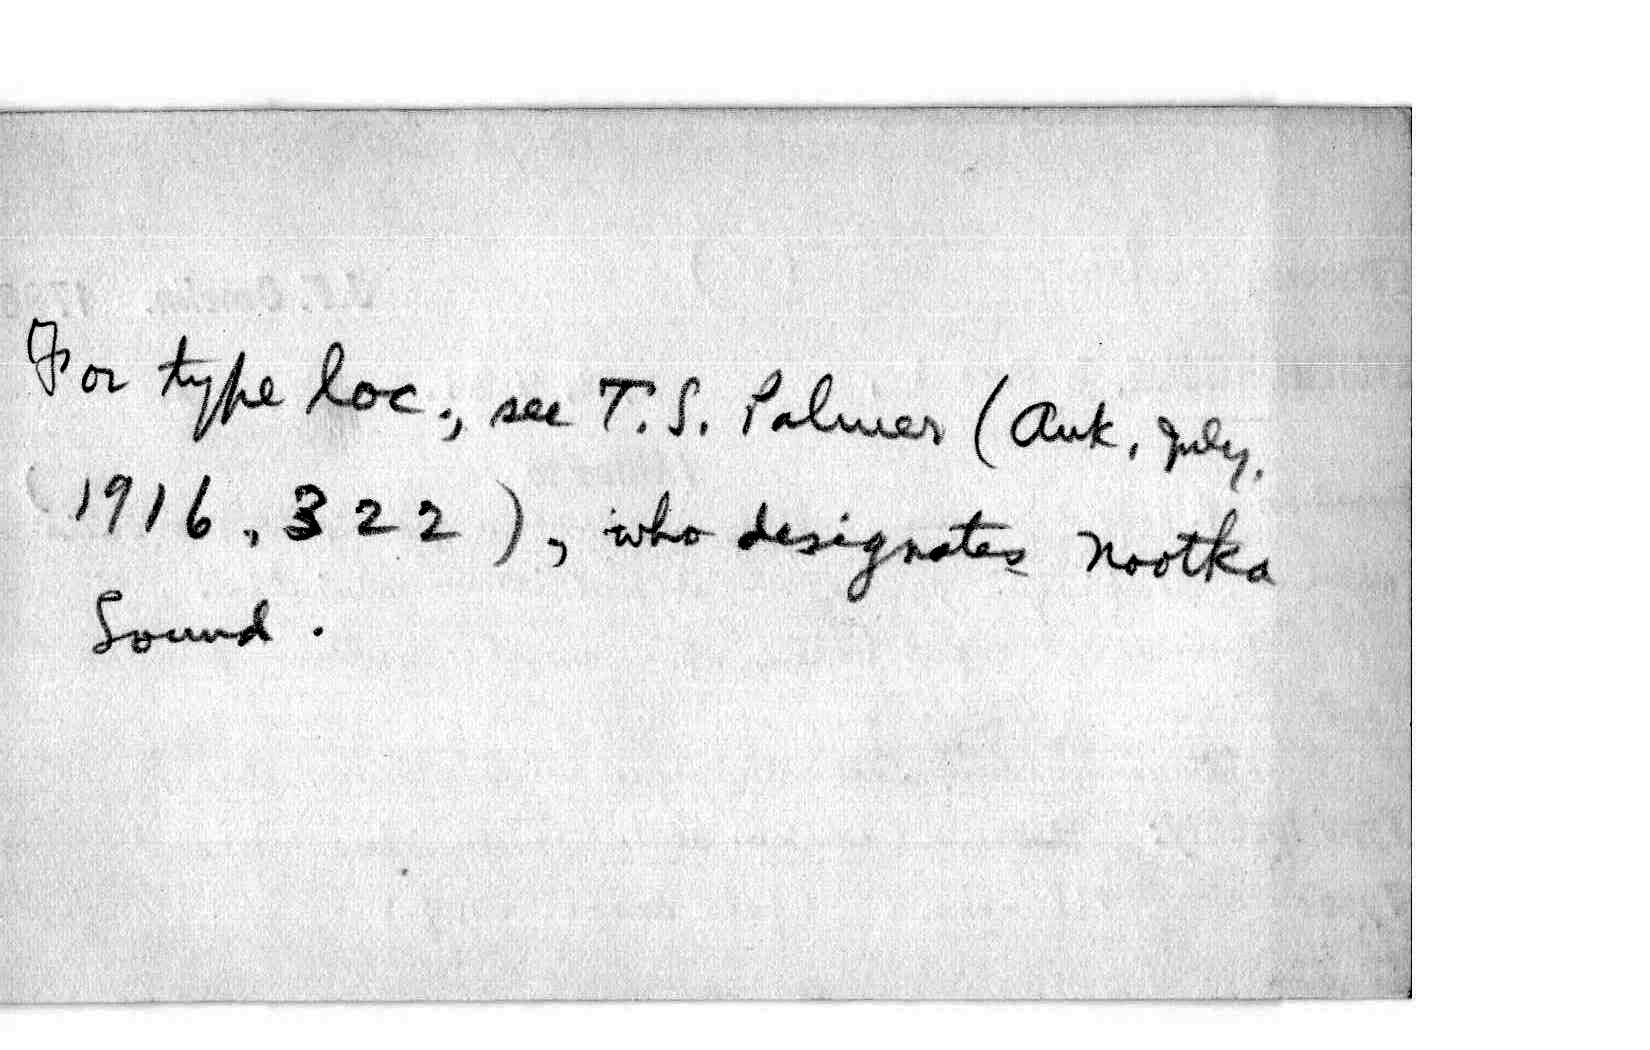 For type loc., see T.S. Palmer (Auk, July,
1916, 322), who designates Nootka
Sound.